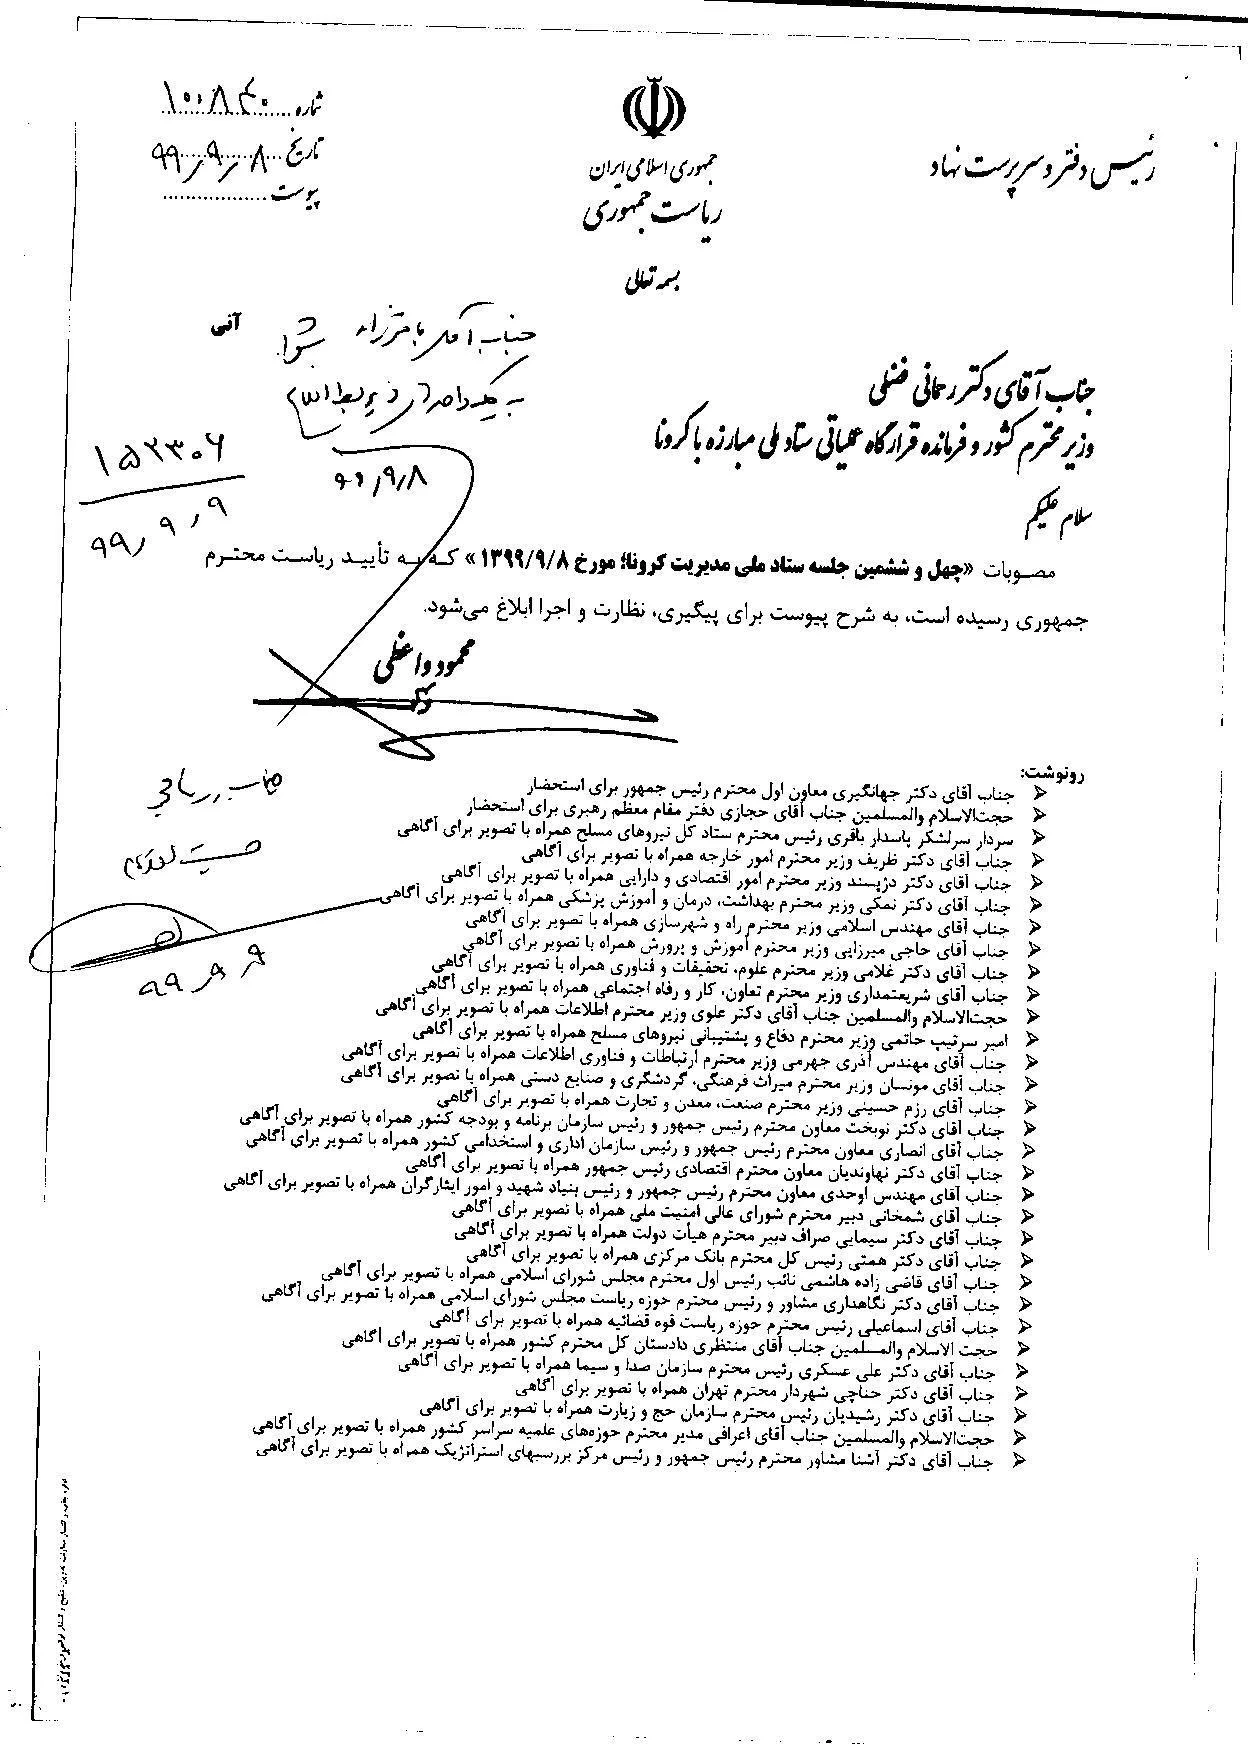 رئیس دفتر و سرپرست نهاد
جمهوری اسلامی ایران
ریاست جمهوری
شماره ۱۰۰۸۴۰
تاریخ ۹۹/۹/۸
پیوست
بسمه تعالی
آنی
جناب آقای
۹۹/۹/۸
۱۵۲۳۰۶
۹۹/۹/۹
جناب آقای دکتر رحمانی فضلی
وزیر محترم کشور و فرمانده قرارگاه عملیاتی ستاد ملی مبارزه با کرونا
سلام علیکم
مصوبات «چهل و ششمین جلسه ستاد ملی مدیریت کرونا؛ مورخ ۱۳۹۹/۹/۸» که به تأیید ریاست محترم
جمهوری رسیده است، به شرح پیوست برای پیگیری، نظارت و اجرا ابلاغ می‌شود.
محمود واعظی
۹۹/۹/۹
رونوشت:
جناب آقای دکتر جهانگیری معاون اول محترم رئیس جمهور برای استحضار
حجت‌الاسلام والمسلمین جناب آقای حجازی دفتر مقام معظم رهبری برای استحضار
سردار سرلشکر پاسدار باقری رئیس محترم ستاد کل نیروهای مسلح همراه با تصویر برای آگاهی
جناب آقای دکتر ظریف وزیر محترم امور خارجه همراه با تصویر برای آگاهی
جناب آقای دکتر دژپسند وزیر محترم امور اقتصادی و دارایی همراه با تصویر برای آگاهی
جناب آقای دکتر نمکی وزیر محترم بهداشت، درمان و آموزش پزشکی همراه با تصویر برای آگاهی
جناب آقای مهندس اسلامی وزیر محترم راه و شهرسازی همراه با تصویر برای آگاهی
جناب آقای حاجی میرزایی وزیر محترم آموزش و پرورش همراه با تصویر برای آگاهی
جناب آقای دکتر غلامی وزیر محترم علوم، تحقیقات و فناوری همراه با تصویر برای آگاهی
جناب آقای شریعتمداری وزیر محترم تعاون، کار و رفاه اجتماعی همراه با تصویر برای آگاهی
حجت‌الاسلام والمسلمین جناب آقای دکتر علوی وزیر محترم اطلاعات همراه با تصویر برای آگاهی
امیر سرتیپ حاتمی وزیر محترم دفاع و پشتیبانی نیروهای مسلح همراه با تصویر برای آگاهی
جناب آقای مهندس آذری جهرمی وزیر محترم ارتباطات و فناوری اطلاعات همراه با تصویر برای آگاهی
جناب آقای مونسان وزیر محترم میراث فرهنگی، گردشگری و صنایع دستی همراه با تصویر برای آگاهی
جناب آقای رزم حسینی وزیر محترم صنعت، معدن و تجارت همراه با تصویر برای آگاهی
جناب آقای دکتر نوبخت معاون محترم رئیس جمهور و رئیس سازمان برنامه و بودجه کشور همراه با تصویر برای آگاهی
جناب آقای انصاری معاون محترم رئیس جمهور و رئیس سازمان اداری و استخدامی کشور همراه با تصویر برای آگاهی
جناب آقای دکتر نهاوندیان معاون محترم اقتصادی رئیس جمهور همراه با تصویر برای آگاهی
جناب آقای مهندس اوحدی معاون محترم رئیس جمهور و رئیس بنیاد شهید و امور ایثارگران همراه با تصویر برای آگاهی
جناب آقای شمخانی دبیر محترم شورای عالی امنیت ملی همراه با تصویر برای آگاهی
جناب آقای دکتر سیمایی صراف دبیر محترم هیأت دولت همراه با تصویر برای آگاهی
جناب آقای دکتر همتی رئیس کل محترم بانک مرکزی همراه با تصویر برای آگاهی
جناب آقای قاضی زاده هاشمی نائب رئیس اول محترم مجلس شورای اسلامی همراه با تصویر برای آگاهی
جناب آقای دکتر نگاهداری مشاور و رئیس محترم حوزه ریاست مجلس شورای اسلامی همراه با تصویر برای آگاهی
جناب آقای اسماعیلی رئیس محترم حوزه ریاست قوه قضائیه همراه با تصویر برای آگاهی
حجت الاسلام والمسلمین جناب آقای منتظری دادستان کل محترم کشور همراه با تصویر برای آگاهی
جناب آقای دکتر علی عسکری رئیس محترم سازمان صدا و سیما همراه با تصویر برای آگاهی
جناب آقای دکتر حناچی شهردار محترم تهران همراه با تصویر برای آگاهی
جناب آقای دکتر رشیدیان رئیس محترم سازمان حج و زیارت همراه با تصویر برای آگاهی
حجت‌الاسلام والمسلمین جناب آقای اعرافی مدیر محترم حوزه‌های علمیه سراسر کشور همراه با تصویر برای آگاهی
جناب آقای دکتر آشنا مشاور محترم رئیس جمهور و رئیس مرکز بررسیهای استراتژیک همراه با تصویر برای آگاهی